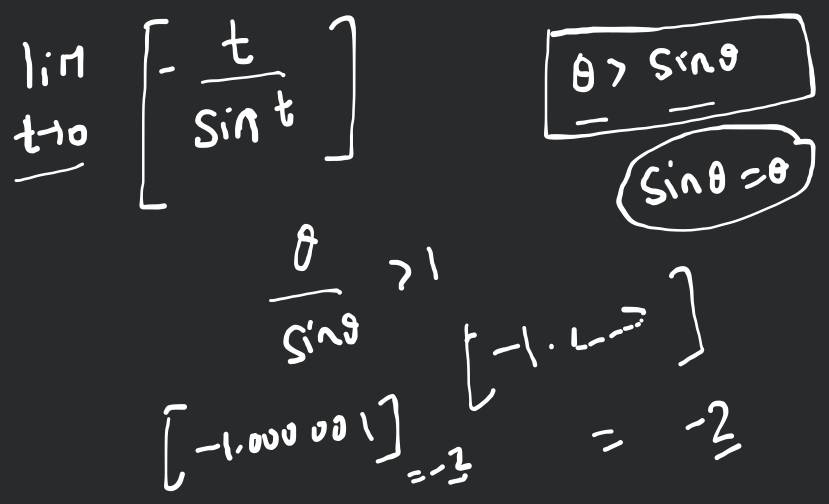 lim t→0 [ - t / sin t ]
θ > sinθ
sinθ = θ
θ / sinθ > 1
[-1.000 001] = -2
[-1. ] = -2